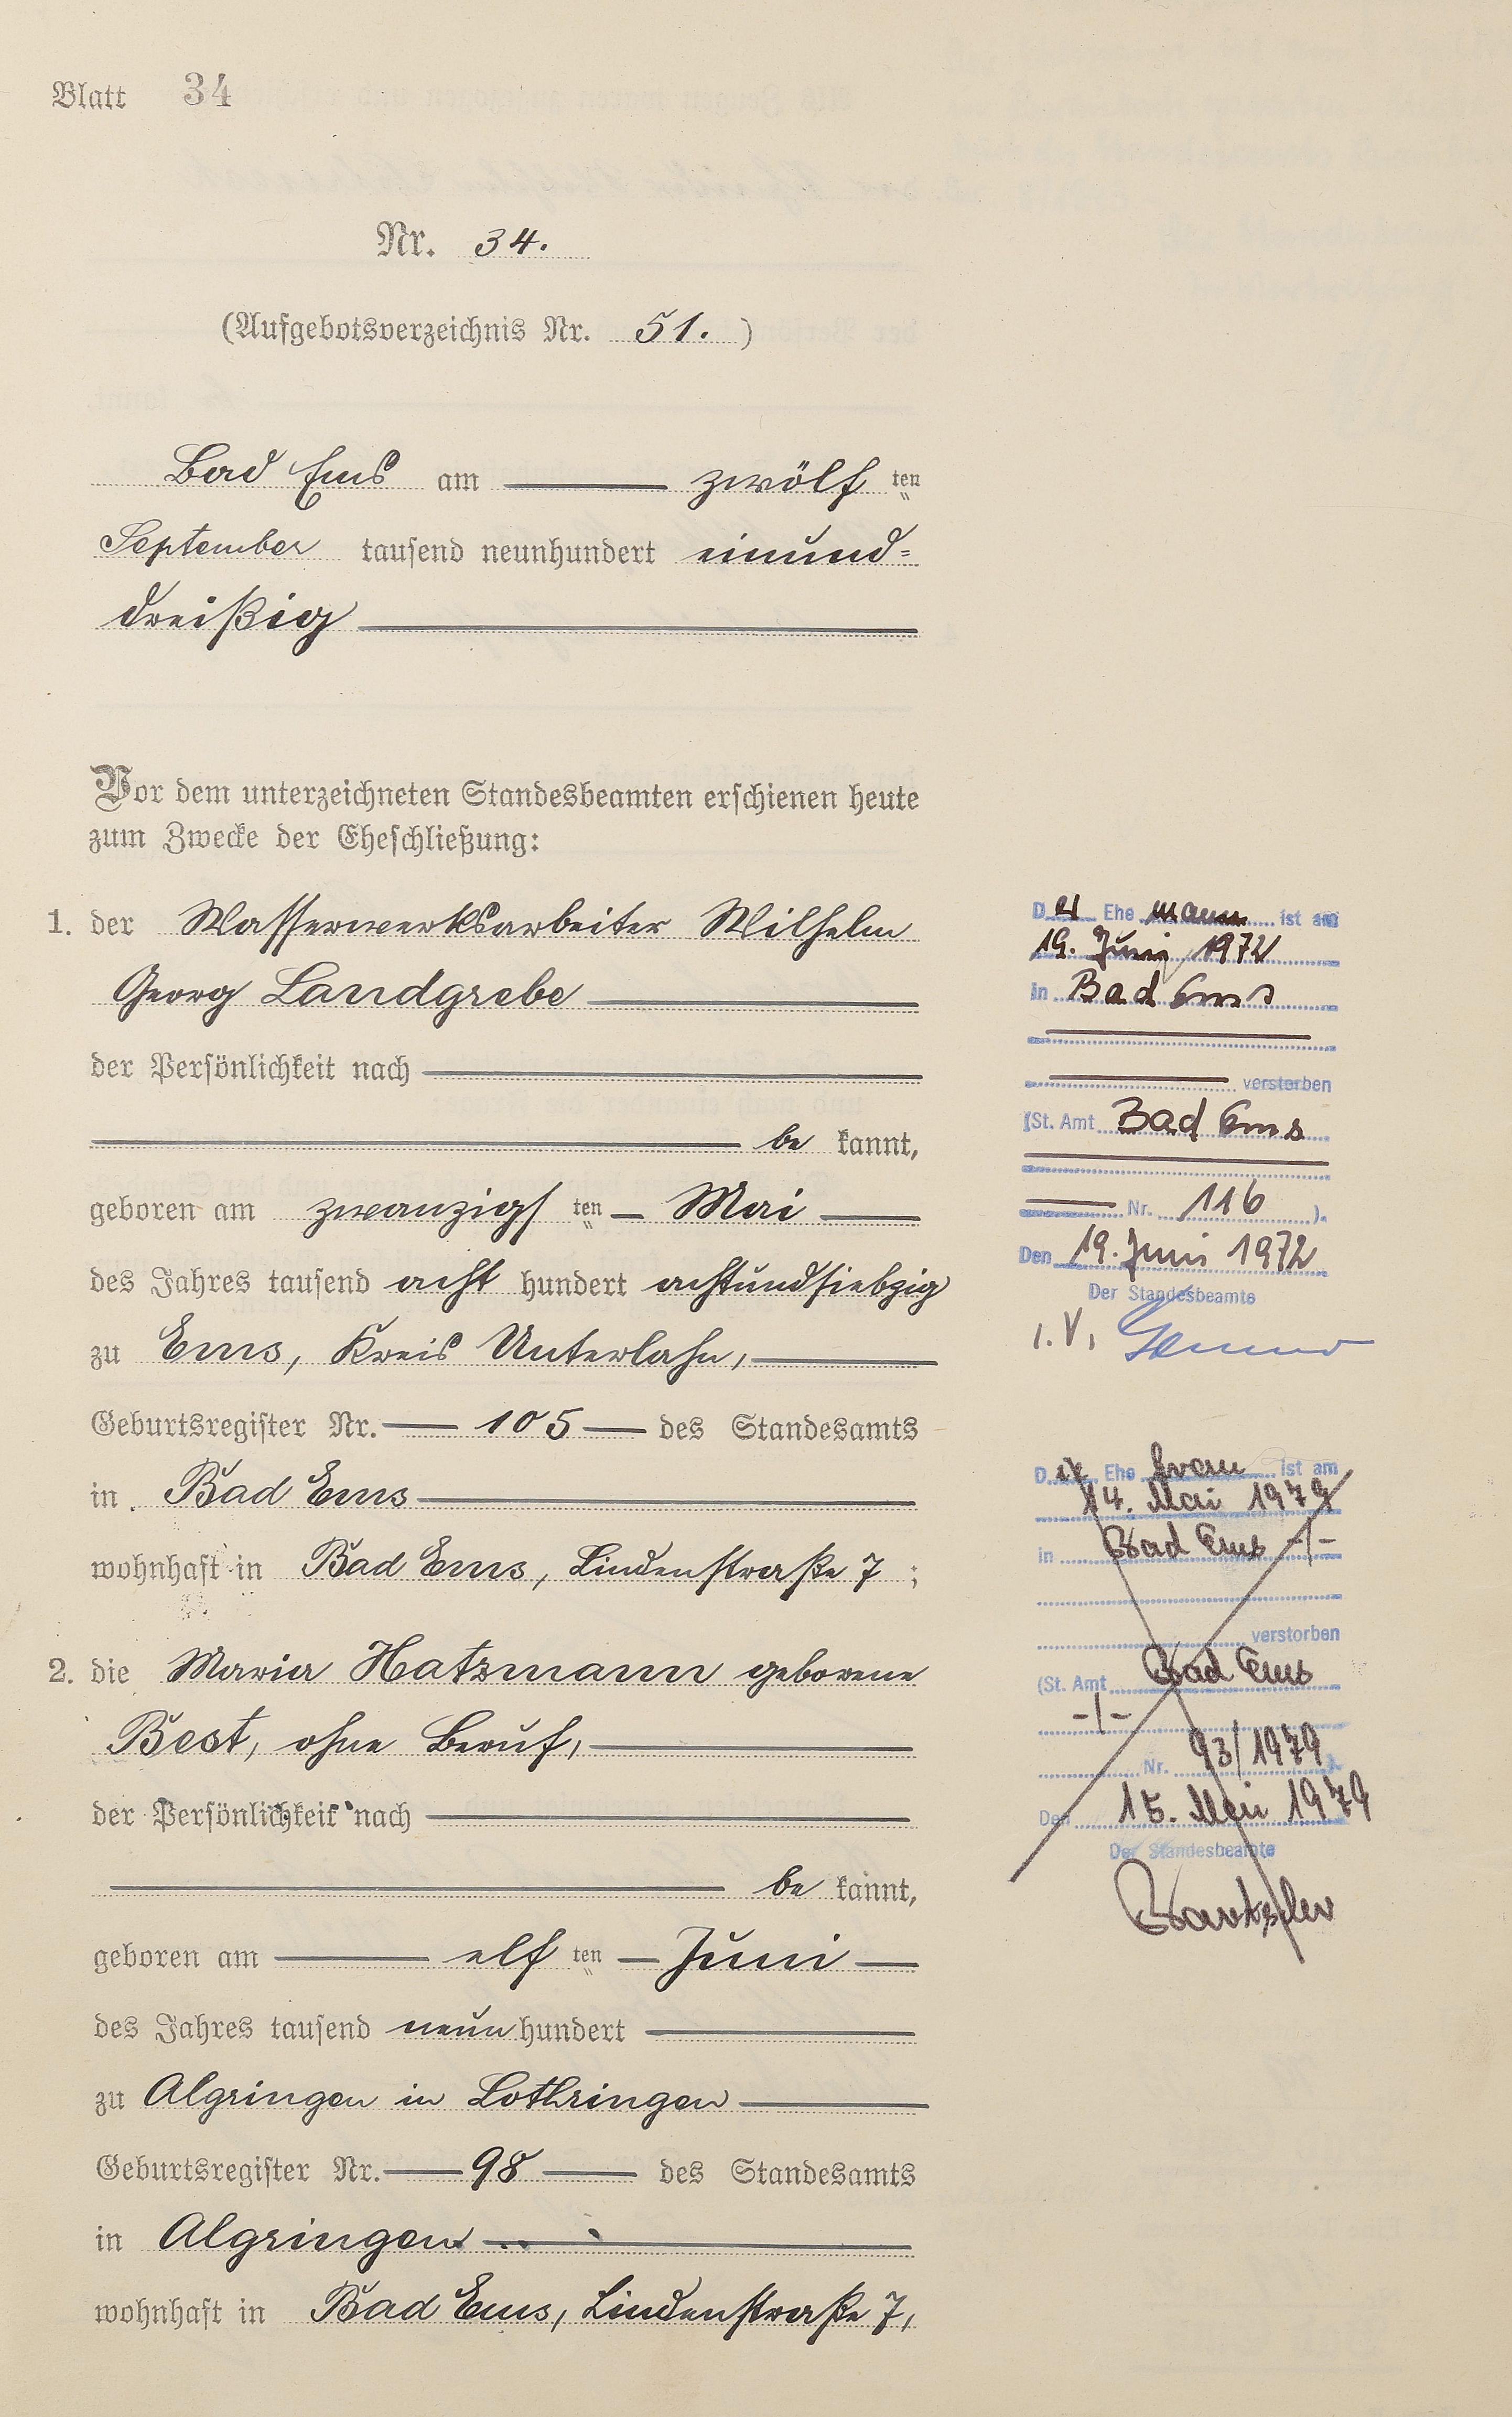 Blatt 34
Nr. 34.
(Aufgebotsverzeichnis Nr. 51.)
Bad Ems am zwölf ten
September tausend neunhundert einund=
dreißig
Vor dem unterzeichneten Standesbeamten erschienen heute
zum Zwecke der Eheschließung:
1. der Wasserwerksarbeiter Wilhelm
Georg Landgrebe
der Persönlichkeit nach
be kannt,
geboren am zwanzigs ten Mai
des Jahres tausend acht hundert achtundsiebzig
zu Ems, Kreis Unterlahn,
Geburtsregister Nr. 105 des Standesamts
in Bad Ems
wohnhaft in Bad Ems, Lindenstraße 7 ;
2. die Maria Hatzmann geborene
Best, ohne Beruf,
der Persönlichkeit nach
be kannt,
geboren am elf ten Juni
des Jahres tausend neun hundert
zu Algringen in Lothringen
Geburtsregister Nr. 98 des Standesamts
in Algringen
wohnhaft in Bad Ems, Lindenstraße 7,
D er Ehe mann ist am
19. Juni 1972
in Bad Ems
verstorben
(St. Amt Bad Ems
Nr. 116 ).
Den 19. Juni 1972
Der Standesbeamte
i. V.
D ie Ehe frau ist am
14. Mai 1979
in Bad Ems -/-
verstorben
(St. Amt Bad Ems
-/-
Nr. 93/1979 ).
Den 15. Mai 1979
Der Standesbeamte